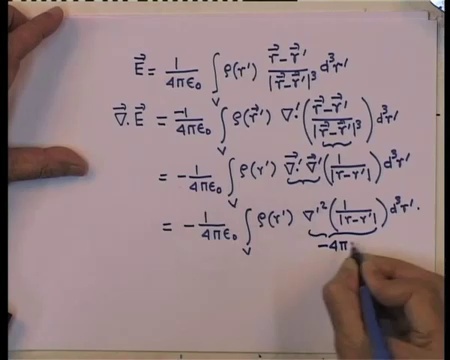 E⃗ = 1/4πϵ₀ ∫_V ρ(r') (r⃗-r⃗')/|r⃗-r⃗'|³ d³r'
∇⃗·E⃗ = -1/4πϵ₀ ∫_V ρ(r⃗') ∇'·((r⃗-r⃗')/|r⃗-r⃗'|³) d³r'
= -1/4πϵ₀ ∫_V ρ(r') ∇⃗'·∇⃗'(1/|r-r'|) d³r'
= -1/4πϵ₀ ∫_V ρ(r') ∇'²(1/|r-r'|) d³r'.
-4π